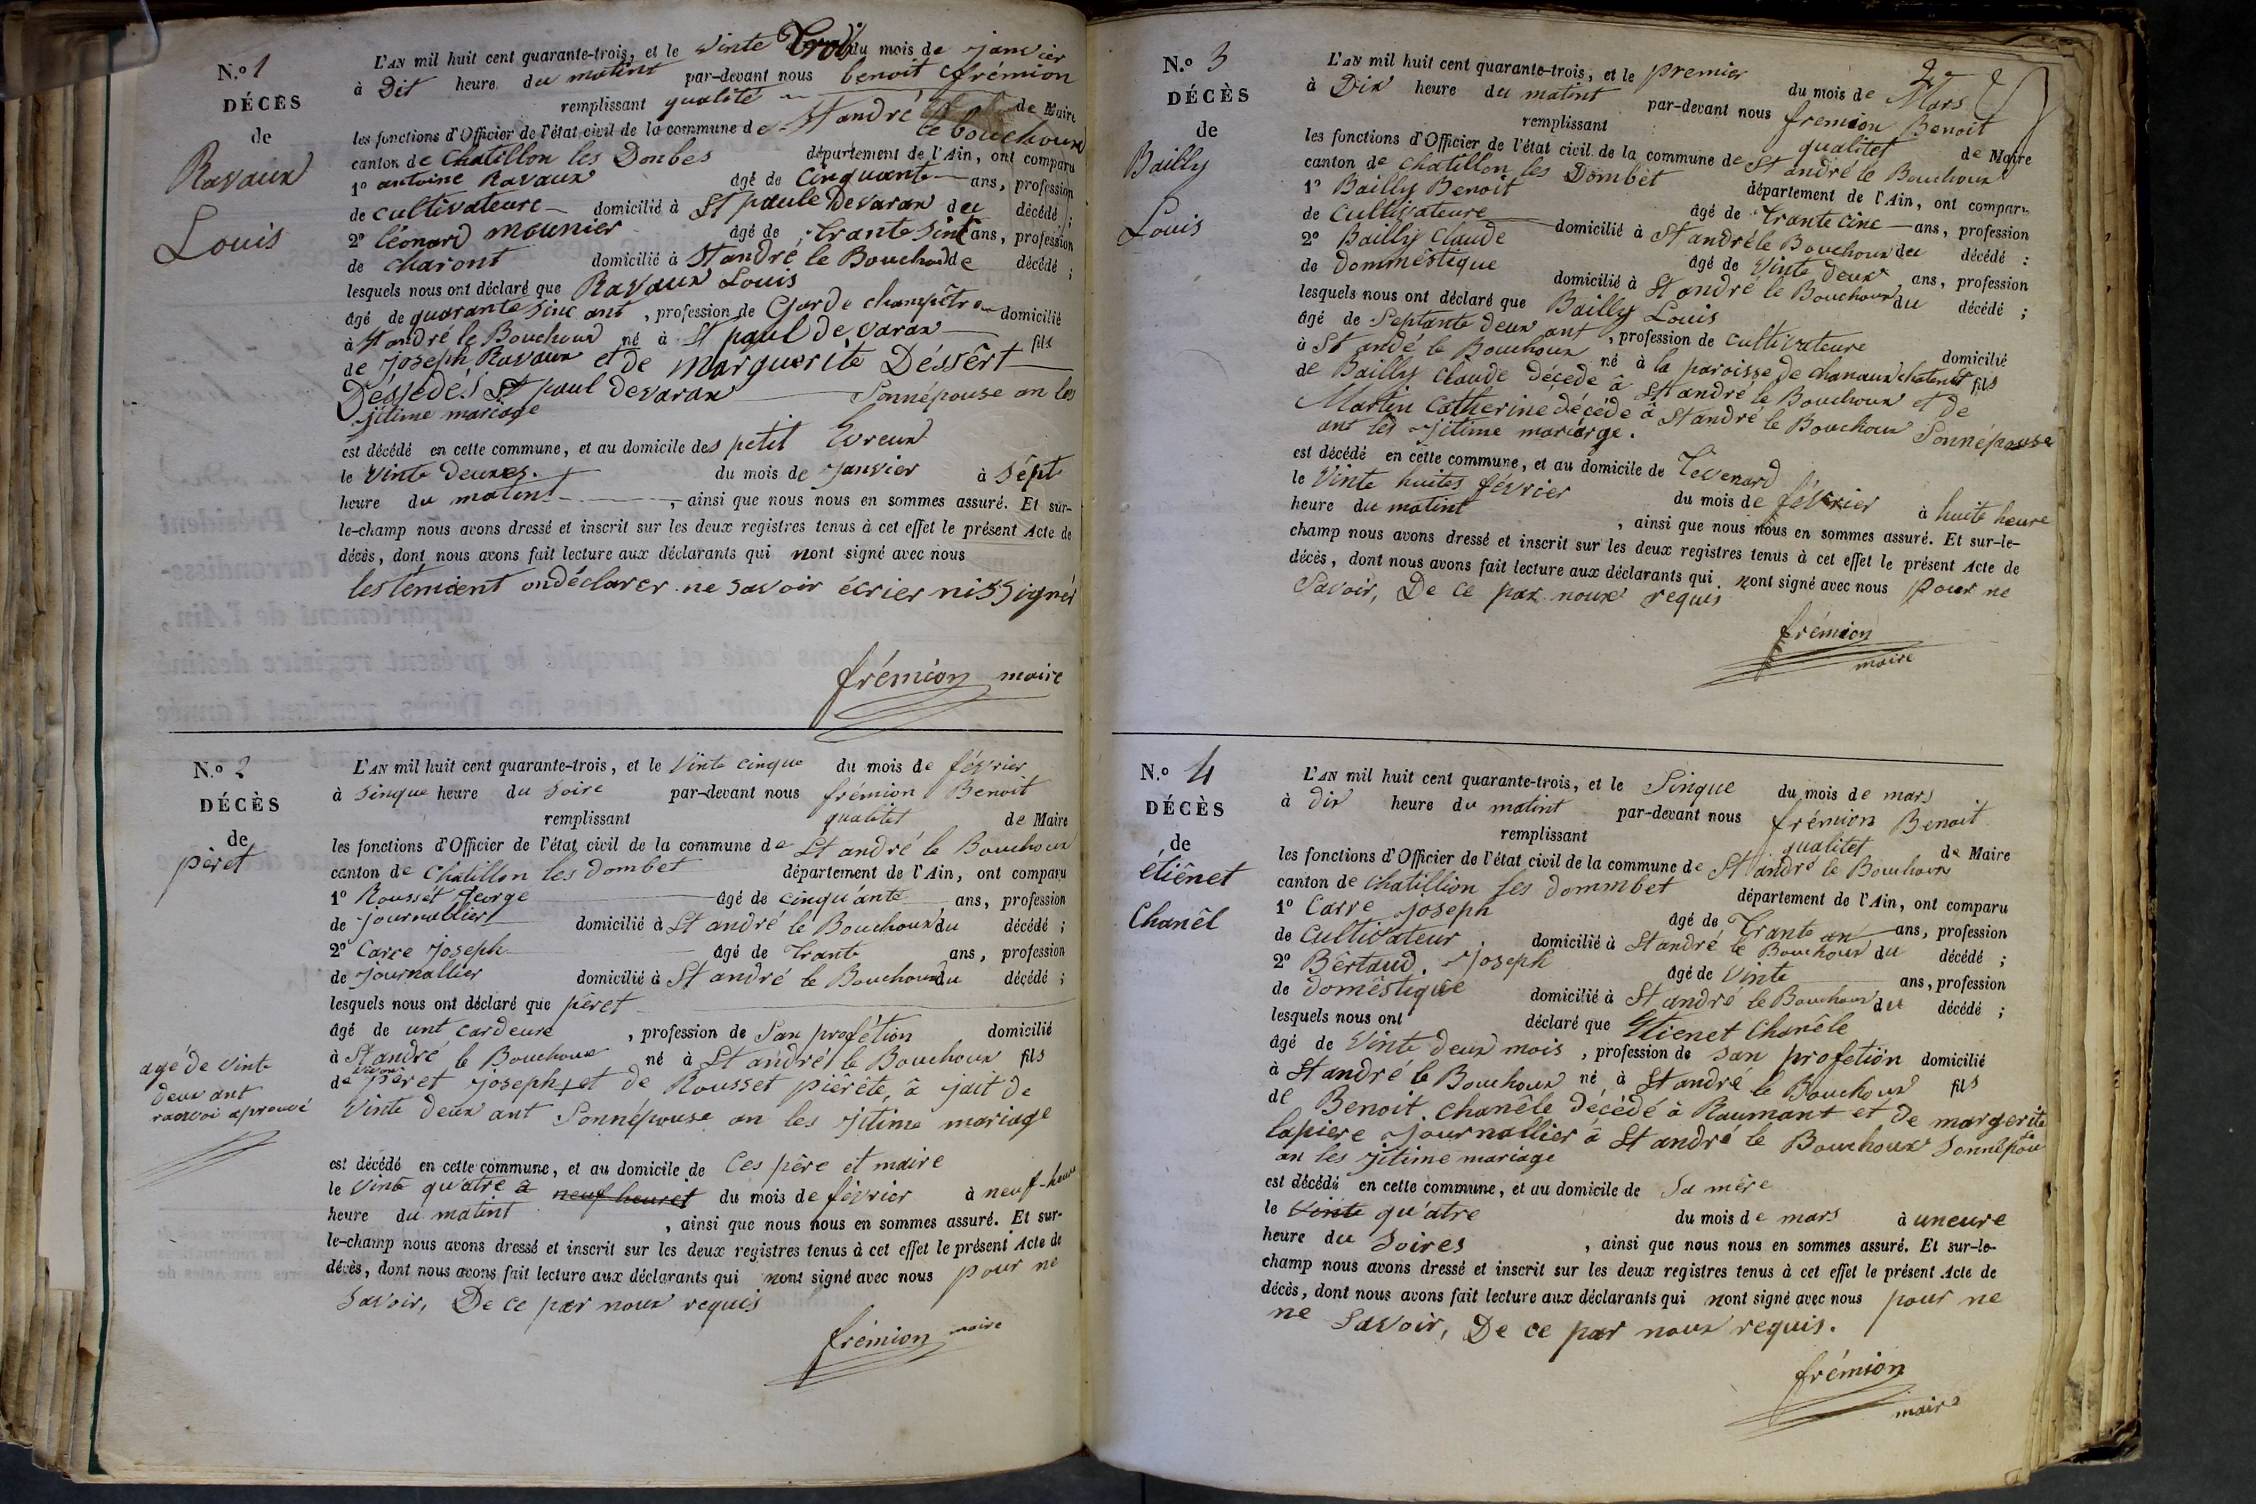 N.o 1
DÉCÈS
de
Ravaux
Louis
L'AN mil huit cent quarante-trois, et le vinte Trois du mois de janvier
à Dit heure du matint par-devant nous benoit frémion
remplissant qualité de Maire
les fonctions d'Officier de l'état civil de la commune de St andré le bouchoux
canton de Chatillon les Donbes département de l'Ain, ont comparu
1o antoine Ravaux âgé de cinquante ans, profession
de cultivateure domicilié à St paule de varax du décédé ;
2o léonard mounier âgé de trante sint ans, profession
de charont domicilié à St andré le Bouchoud de décédé ;
lesquels nous ont déclaré que Ravaux Louis
âgé de quarante sinc ant, profession de Garde champêtre domicilié
à St andré le Bouchoud né à St paul de varax fils
de joseph Ravaux et de Marguerite Déssêrt
Déssédés St paul de varax Sonnépouse an les
jitime mariage
est décédé en cette commune, et au domicile des petit Evreux
le vinte deuxes. du mois de janvier à sépt
heure du matint, ainsi que nous nous en sommes assuré. Et sur-
le-champ nous avons dressé et inscrit sur les deux registres tenus à cet effet le présent Acte de
décès, dont nous avons fait lecture aux déclarants qui nont signé avec nous
les témient ondéclarer ne savoir écrier ni Signér
frémion maire
N.o 2
DÉCÈS
de
pèret
L'AN mil huit cent quarante-trois, et le vinte cinque du mois de février
à sinque heure du soire par-devant nous frémion Benoit
remplissant qualitet de Maire
les fonctions d'Officier de l'état civil de la commune de St andré le Bouchoux
canton de Chatillon les dombet département de l'Ain, ont comparu
1o Roussét George âgé de cinqu'ante ans, profession
de journallier domicilié à St andré le Bouchoux du décédé ;
2o Carre joseph âgé de trante ans, profession
de journallier domicilié à St andré le Bouchoux du décédé ;
lesquels nous ont déclaré que pèret
âgé de unt cardeure, profession de San profétion domicilié
à St andré le Bouchoux né à St andré le Bouchoux fils
de pèret joseph et de Rousset pièrète, à jait de
Vinte deux ant Sonnépouse an les jitime mariage
agé de vinte
deux ant
est décédé en cette commune, et au domicile de Ces père et maire
le vinte qu'atre a neuf heuret du mois de février à neuf-heure
heure du matint, ainsi que nous nous en sommes assuré. Et sur-
le-champ nous avons dressé et inscrit sur les deux registres tenus à cet effet le présent Acte de
décès, dont nous avons fait lecture aux déclarants qui nont signé avec nous pour ne
savoir, De ce par noux requis
frémion maire
N.o 3
DÉCÈS
de
Bailly
Louis
2
L'AN mil huit cent quarante-trois, et le premier du mois de Mars
à Dix heure du matint par-devant nous fremion Benoit
remplissant qualitet de Maire
les fonctions d'Officier de l'état civil de la commune de St andré le Bouchoux
canton de chatillon les Dombet département de l'Ain, ont comparu
1o Bailly Benoit âgé de trante cinc ans, profession
de Cultivateure domicilié à St andré le Bouchoux du décédé ;
2o Bailly Claude âgé de vinte deux ans, profession
de domméstique domicilié à St andré le Bouchoux du décédé ;
lesquels nous ont déclaré que Bailly Louis
âgé de Septante deux ant, profession de cultivateure domicilié
à St andé le Bouchoux né à la paroisse de chanaux chatenet fils
de Bailly Claude décéde à St andré le Bouchoux et de
Martin Catherine décéde à St andré le Bouchoux Sonnépouse
ant les jitime mariarge.
est décédé en cette commune, et au domicile de Tevenard
le Vinte huites février du mois de février à huite heure
heure du matint, ainsi que nous nous en sommes assuré. Et sur-le-
champ nous avons dressé et inscrit sur les deux registres tenus à cet effet le présent Acte de
décès, dont nous avons fait lecture aux déclarants qui nont signé avec nous pour ne
Savoir, De ce par noux requis
frémion
maire
N.o 4
DÉCÈS
de
étiênet
Chanêl
L'AN mil huit cent quarante-trois, et le Sinque du mois de mars
à dix heure du matint par-devant nous frémion Benoit
remplissant qualitet de Maire
les fonctions d'Officier de l'état civil de la commune de St andré le Bouchoux
canton de chatillion les dommbet département de l'Ain, ont comparu
1o Carre joseph âgé de Trante an ans, profession
de Cultivateur domicilié à St andré le Bouchoux du décédé ;
2o Bêrtaud. joseph âgé de vinte ans, profession
de domêstique domicilié à St andré le Bouchoux du décédé ;
lesquels nous ont déclaré que Etienet Chanêle
âgé de Vinte deux mois, profession de san profetion domicilié
à St andré le Bouchoux né à St andré le Bouchoux fils
de Benoit. chanêle décédé à Raumant et de margerite
lapiere journallier à St andré le Bouchoux Sonnépouse
an les jitime mariage
est décédé en cette commune, et au domicile de Sa mère
le vinte qu'atre du mois de mars à uneure
heure du Soires, ainsi que nous nous en sommes assuré. Et sur-le-
champ nous avons dressé et inscrit sur les deux registres tenus à cet effet le présent Acte de
décès, dont nous avons fait lecture aux déclarants qui nont signé avec nous pour ne
ne Savoir, De ce par noux requis.
frémion
maire